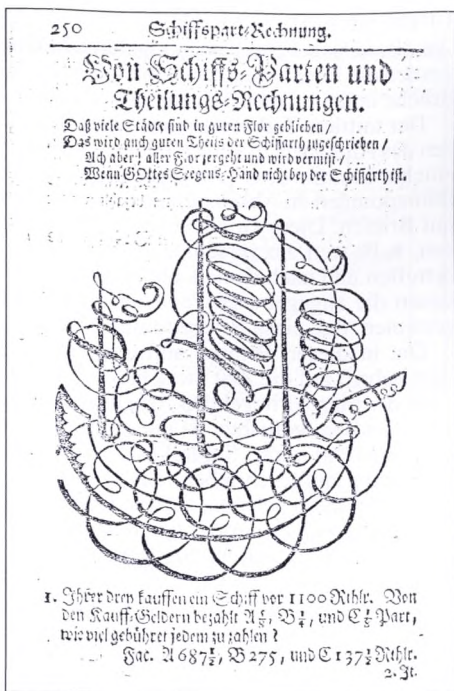 250 Schiffspart-Rechnung.
Von Schiffs-Parten und
Theilungs-Rechnungen.
Daß viele Städte sind in guten Flor geblieben/
Das wird auch guten Theils der Schiffarth zugeschrieben/
Ach aber! aller Flor zergeht und wird vermist/
Wenn GOttes Seegens-Hand nicht bey der Schiffarth ist.
1. Ihrer drey kauffen ein Schiff vor 1100 Rthlr. Von
den Kauff-Geldern bezahlt A ⅝, B ¼, und C ⅛ Part,
wie viel gebühret jedem zu zahlen?
Fac. A 687½, B 275, und C 137½ Rthlr.
2. It.